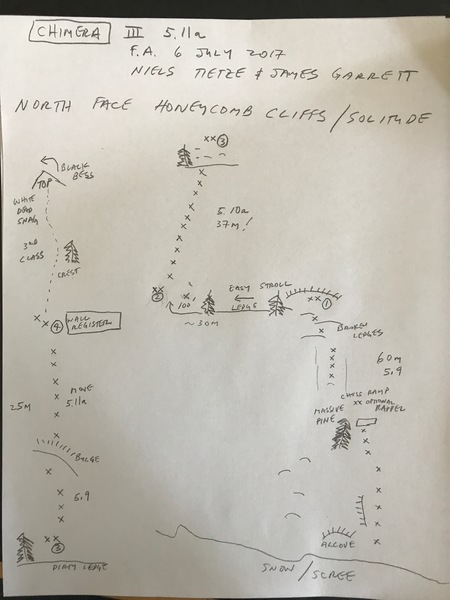 CHIMERA III 5.11a
F.A. 6 JULY 2017
NIELS TIETZE & JAMES GARRETT
NORTH FACE HONEYCOMB CLIFFS/SOLITUDE
BLACK
BESS
TOP
WHITE
DEAD
SNAG
3RD
CLASS
CREST
4
WALL
REGISTER
MOVE
5.11a
25M
BULGE
5.9
3
DIRTY LEDGE
3
5.10a
37M!
2
10'
EASY STROLL
LEDGE
~30M
1
BROKEN
LEDGES
60M
5.9
CHOSS RAMP
XX OPTIONAL
RAPPEL
MASSIVE
PINE
ALCOVE
SNOW/SCREE